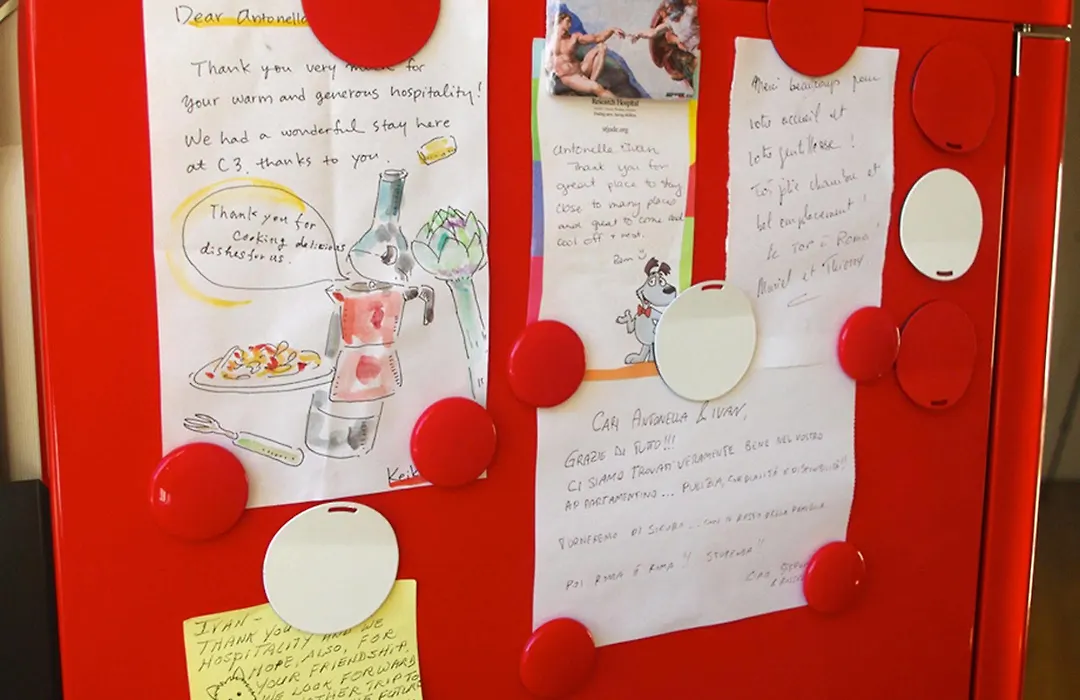 Dear Antonella
Thank you very much for
your warm and generous hospitality!
We had a wonderful stay here
at C3, thanks to you.
Thank you for
Cooking delicious
dishes for us.
Keik
Research Hospital
stjude.org
Antonella Ivan
Thank you for
great place to stay
close to many places
and great to come and
cool off & rest.
Merci beaucoup pour
votre accueil et
votre gentillesse !
Très jolie chambre et
bel emplacement !
à Roma !
Muriel et Thierry
CARI ANTONELLA & IVAN,
GRAZIE DI TUTTO!!!
CI SIAMO TROVATI VERAMENTE BENE NEL VOSTRO
APPARTAMENTINO... PULIZIA, CORDIALITÀ E DISPONIBILITÀ!!
TORNEREMO DI SICURO... CON IL RESTO DELLA FAMIGLIA
POI ROMA È ROMA!! STUPENDA!!
CIAO
IVAN -
THANK YOU
HOSPITALITY AND WE
HOPE, ALSO, FOR
YOUR FRIENDSHIP.
WE LOOK FORWARD
TRIP TO
FUTURE